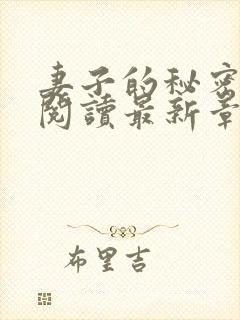 妻子的秘密
閱讀最新章
布里吉